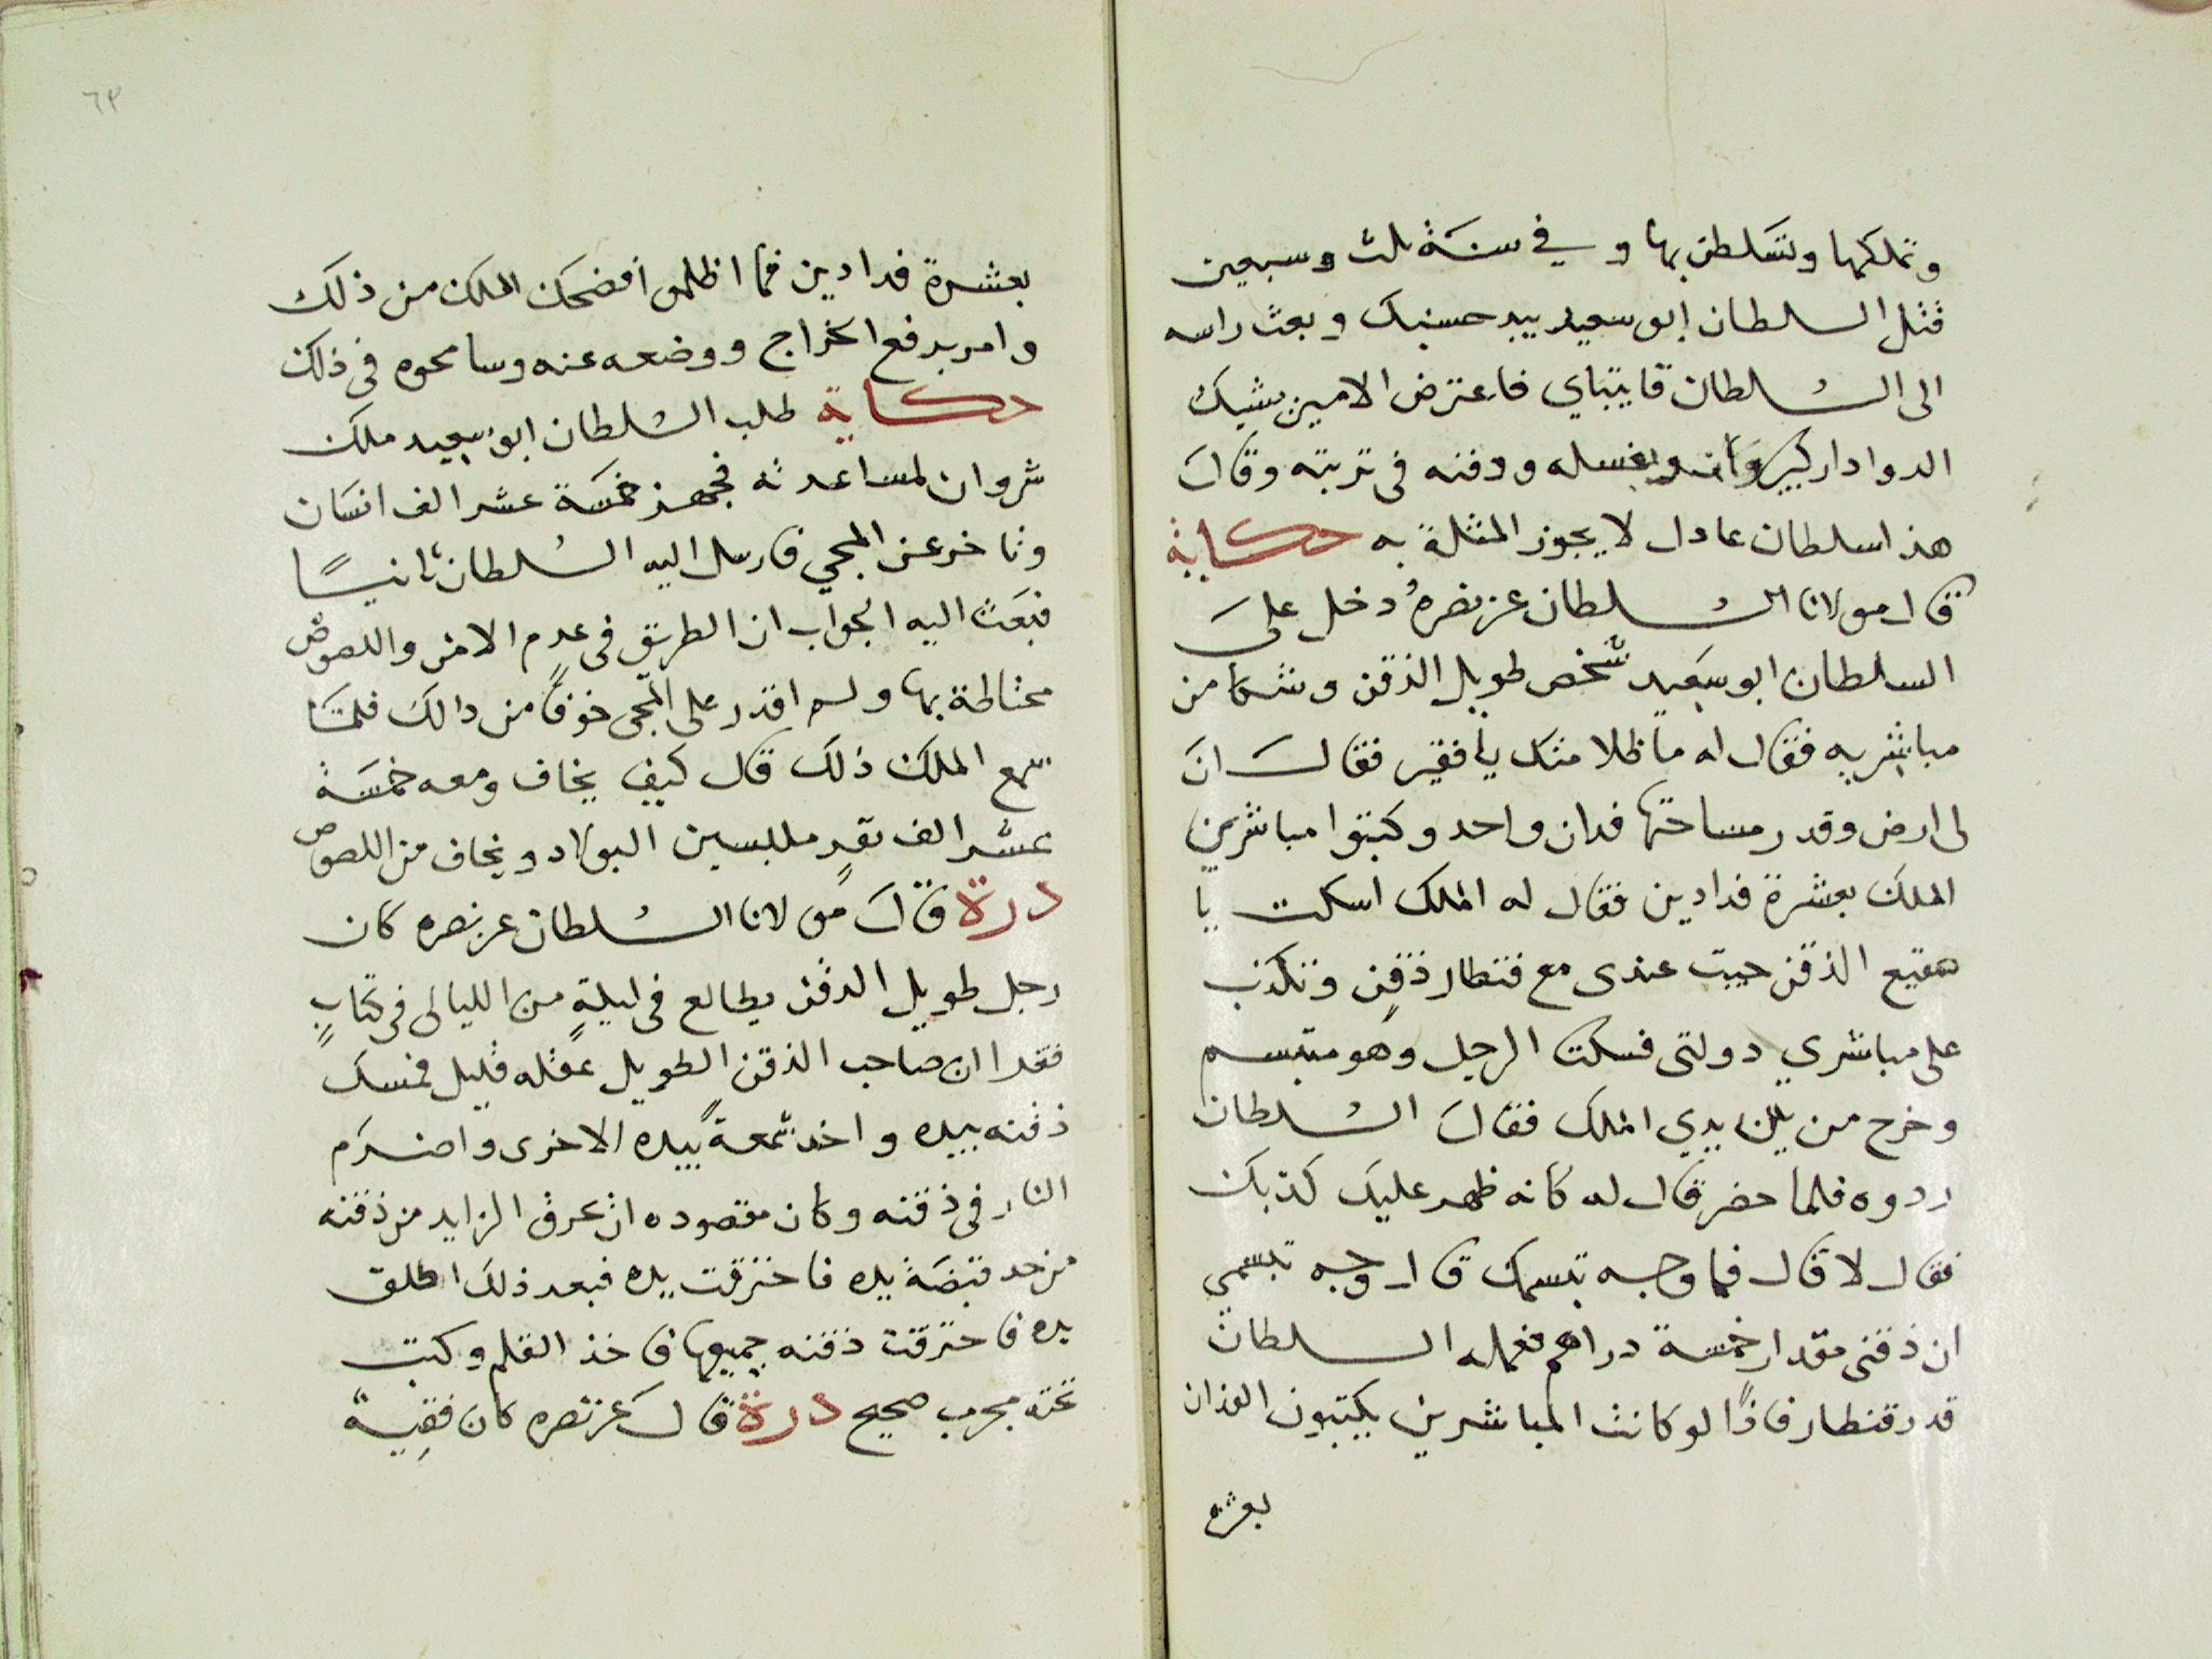 وتملكها وتسلطن بها وفي سنة ثلث وسبعين
قتل السلطان ابو سعيد بيد حسنبك وبعث راسه
الى السلطان قايتباي فاعترض الامير يشبك
الدوادار كبير وامر بغسله ودفنه في تربته وقال
هذا سلطان عادل لا يجوز المثلة به حكاية
قال مولانا السلطان عز نصره دخل على
السلطان ابو سعيد شخص طويل الذقن وشكا من
مباشريه فقال له ما ظلامتك يا فقير فقال ان
لى ارض وقدر مساحتها فدان واحد وكتبوا مباشرين
الملك بعشرة فدادين فقال له الملك اسكت يا
الذقن جيت عندى مع قنطار ذقن وتكذب
على مباشري دولتى فسكت الرجل وهو متبسم
وخرج من بين يدي الملك فقال السلطان
ردوه فلما حضر قال له كانه ظهر عليك كذبك
فقال لا قال فما وجه تبسمك قال وجه تبسمي
ان ذقنى مقدار خمسة دراهم فعمله السلطان
قدر قنطار فاذًا لو كانت المباشرين يكتبون الفدان
بعشرة
٦٣
بعشرة فدادين فما اظلموا فضحك الملك من ذلك
وامر برفع الخراج ووضعه عنه وسامحوه فى ذلك
حكاية طلب السلطان ابو سعيد ملك
شروان لمساعدته فجهز خمسة عشر الف انسان
وتاخر عن المجي فارسل اليه السلطان ثانيًا
فبعث اليه الجواب ان الطريق فى عدم الامن واللصوص
محتاطة بها ولم اقدر على المجى خوفًا من دالك فلما
سمع الملك ذلك قال كيف يخاف ومعه خمسة
عشر الف نفرٍ ملبسين البولاد ويخاف من اللصوص
درة قال مولانا السلطان عز نصره كان
رجل طويل الدقن يطالع فى ليلةٍ من الليالى فى كتابٍ
فقرا ان صاحب الذقن الطويل عقله قليل فمسك
ذقنه بيده واخد شمعةً بيده الاخرى واضرم
النار فى ذقنه وكان مقصوده ان يحرق الزايد من ذقنه
من حد قبضة يده فاحترقت يده فبعد ذلك اطلق
يده فاحترقت ذقنه جميعها فاخذ القلم وكتب
تحته مجرب صحيح درة قال عز نصره كان فقيه